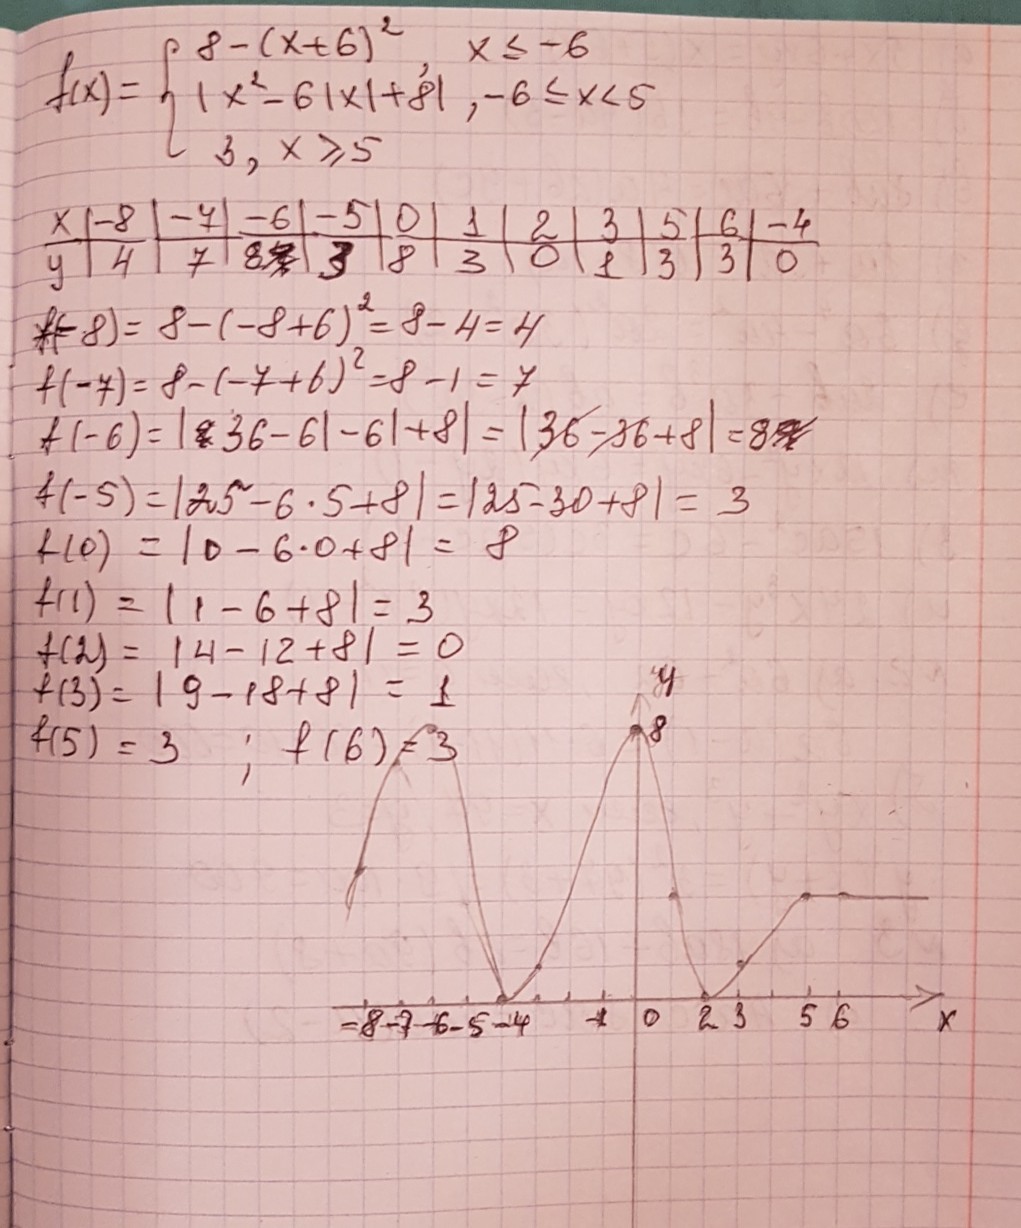 f(x) = { 8 - (x+6)², x ≤ -6
|x² - 6|x| + 8|, -6 ≤ x < 5
3, x ⩾ 5
x | -8 | -7 | -6 | -5 | 0 | 1 | 2 | 3 | 5 | 6 | -4
y | 4 | 7 | 8 | 3 | 8 | 3 | 0 | 1 | 3 | 3 | 0
f(-8) = 8 - (-8+6)² = 8 - 4 = 4
f(-7) = 8 - (-7+6)² = 8 - 1 = 7
f(-6) = |36 - 6|-6| + 8| = |36 - 36 + 8| = 8
f(-5) = |25 - 6·5 + 8| = |25 - 30 + 8| = 3
f(0) = |0 - 6·0 + 8| = 8
f(1) = |1 - 6 + 8| = 3
f(2) = |4 - 12 + 8| = 0
f(3) = |9 - 18 + 8| = 1
f(5) = 3 ; f(6) = 3
y
8
-8 -7 -6 -5 -4 -1 0 2 3 5 6 x